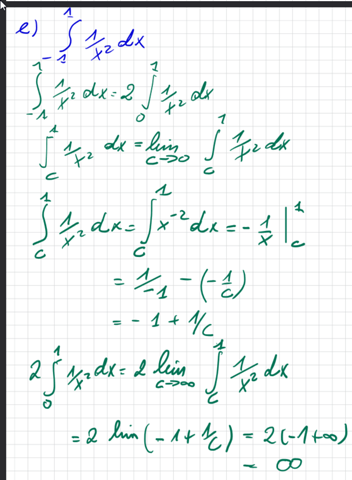 e) ∫_{-1}^{1} 1/x² dx
∫_{-1}^{1} 1/x² dx = 2 ∫_{0}^{1} 1/x² dx
∫_{c}^{1} 1/x² dx = lim_{c→0} ∫_{c}^{1} 1/x² dx
∫_{c}^{1} 1/x² dx = ∫_{c}^{1} x^{-2} dx = - 1/x |_{c}^{1}
= 1/-1 - (-1/c)
= -1 + 1/c
2 ∫_{0}^{1} 1/x² dx = 2 lim_{c→∞} ∫_{c}^{1} 1/x² dx
= 2 lim (-1 + 1/c) = 2(-1+∞)
= ∞